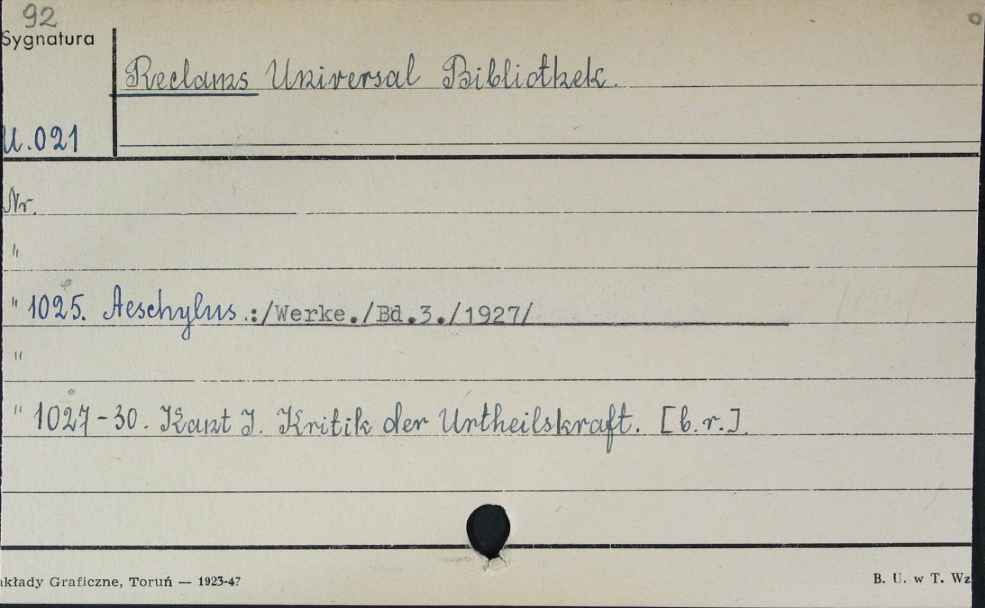 92
Sygnatura
Reclams Universal Bibliothek.
U.021
Nr.
"
" 1025. Aeschylus.:/Werke./Bd.3./1927/
"
" 1027-30. Kant I. Kritik der Urtheilskraft. [b.r.]
akłady Graficzne, Toruń — 1923-47
B. U. w T. Wz